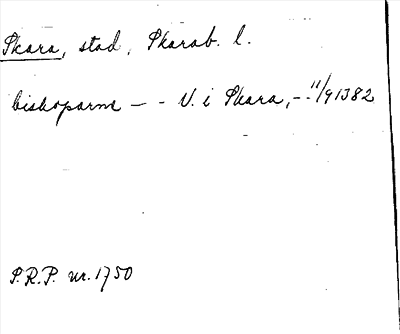 Skara, stad, Skarab. l.
biskoparne — - V. i Skara, -. 11/9 1382
P.R.P. nr. 1750